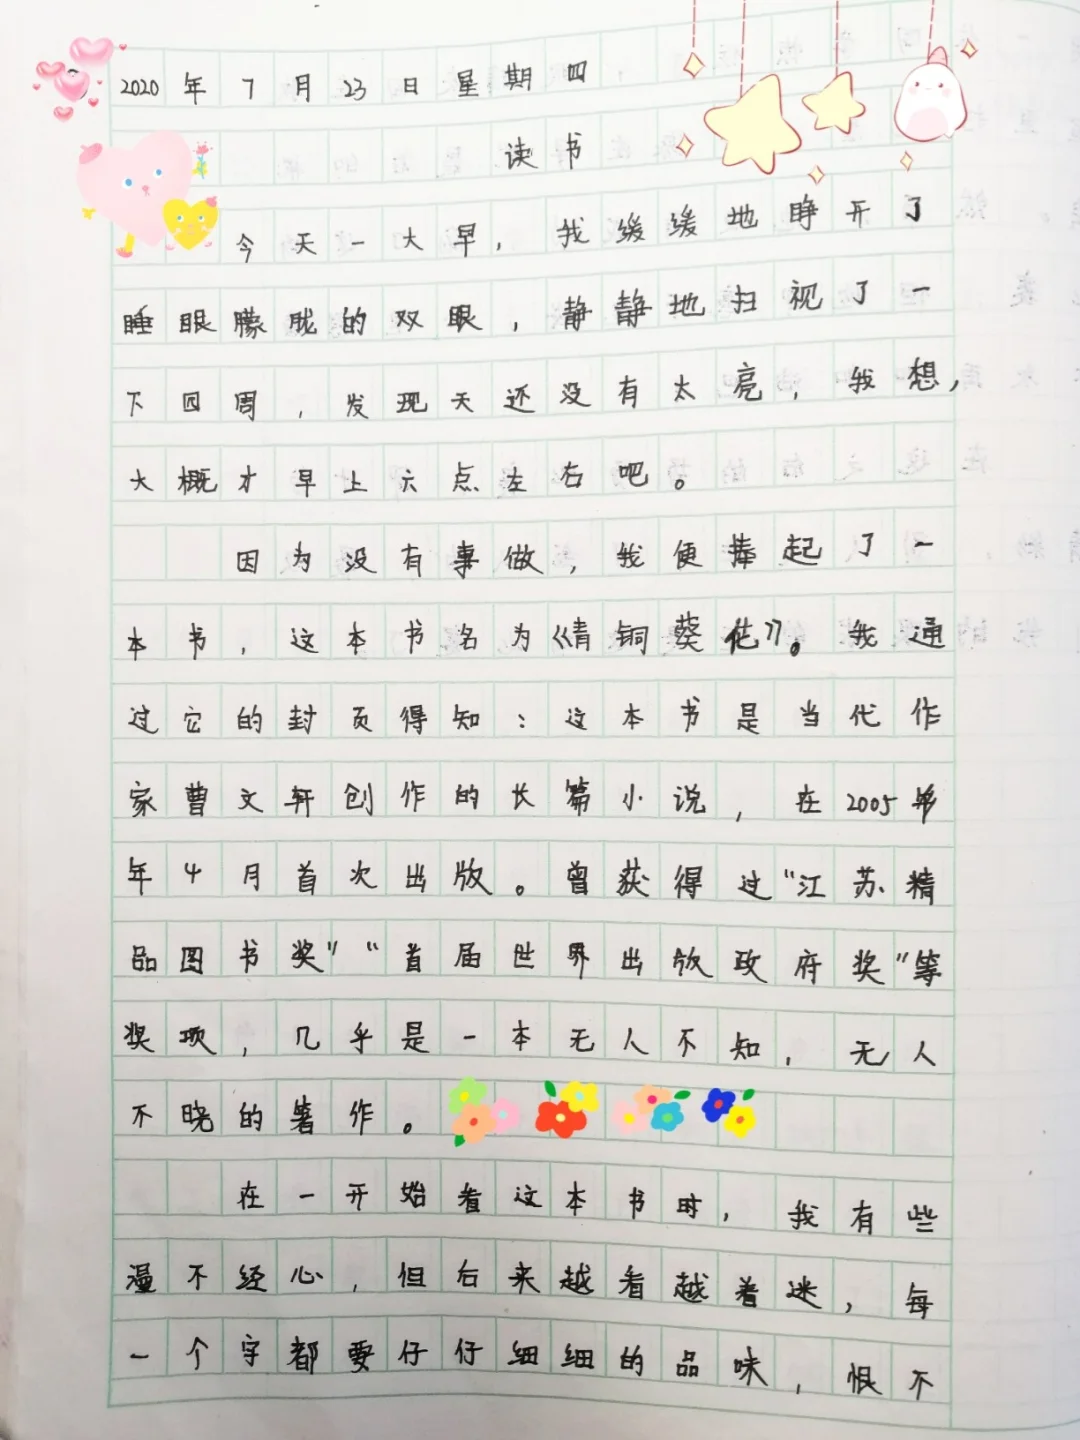 2020年7月23日星期四
读书
今天一大早，我缓缓地睁开了
睡眼朦胧的双眼，静静地扫视了一
下四周，发现天还没有太亮，我想，
大概才早上六点左右吧。
因为没有事做，我便捧起了一
本书，这本书名为《青铜葵花》。我通
过它的封页得知：这本书是当代作
家曹文轩创作的长篇小说，在2005年
年4月首次出版。曾获得过“江苏精
品图书奖”“首届世界出版政府奖”等
奖项，几乎是一本无人不知，无人
不晓的著作。
在一开始看这本书时，我有些
漫不经心，但后来越看越着迷，每
一个字都要仔仔细细的品味，恨不